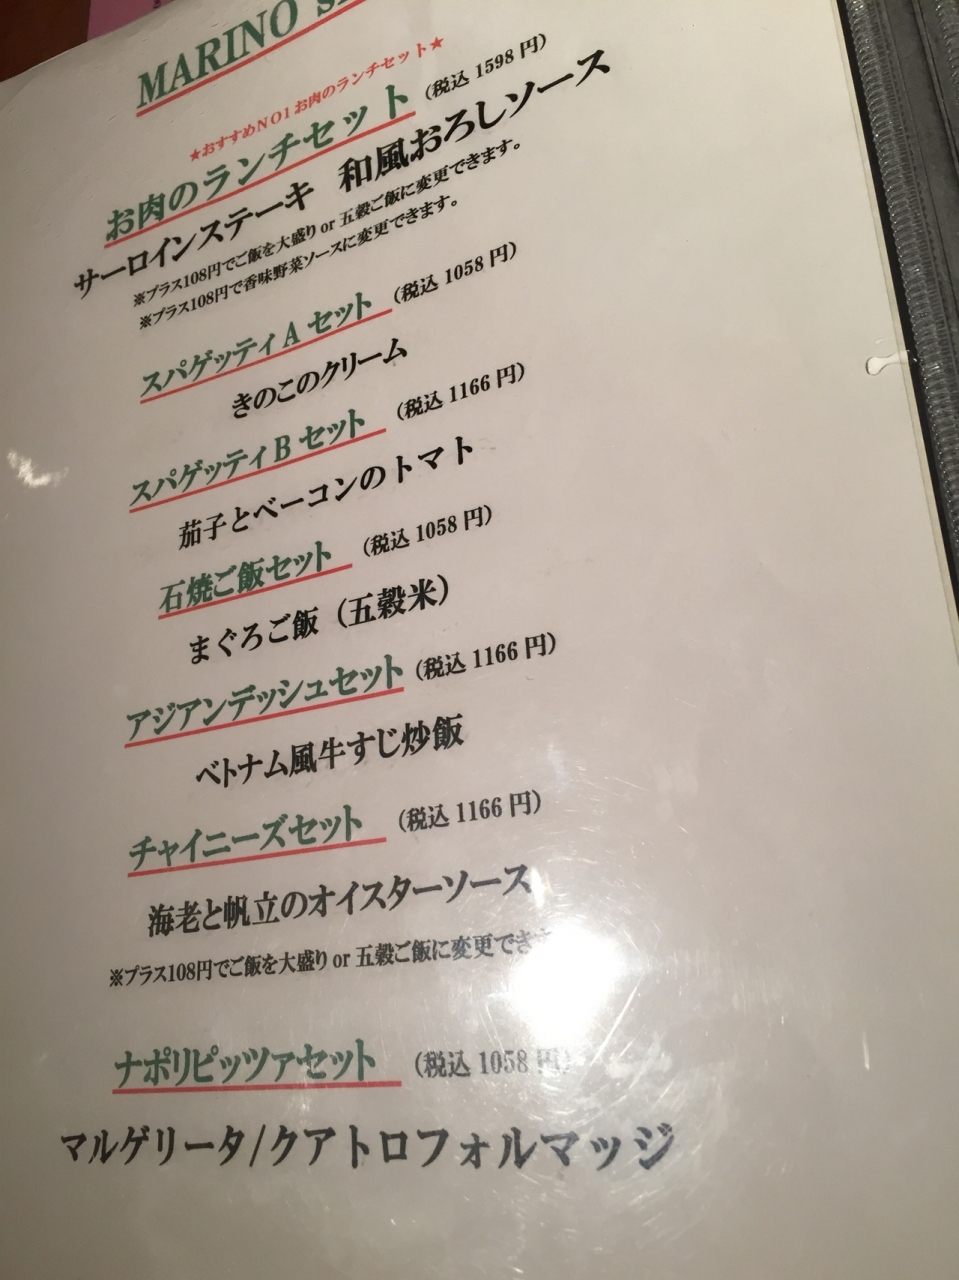 MARINO
★おすすめNO1お肉のランチセット★
お肉のランチセット (税込 1598 円)
サーロインステーキ 和風おろしソース
※プラス108円でご飯を大盛り or 五穀ご飯に変更できます。
※プラス108円で香味野菜ソースに変更できます。
スパゲッティ A セット (税込 1058 円)
きのこのクリーム
スパゲッティ B セット (税込 1166 円)
茄子とベーコンのトマト
石焼ご飯セット (税込 1058 円)
まぐろご飯（五穀米）
アジアンデッシュセット (税込 1166 円)
ベトナム風牛すじ炒飯
チャイニーズセット (税込 1166 円)
海老と帆立のオイスターソース
※プラス108円でご飯を大盛り or 五穀ご飯に変更できま
ナポリピッツァセット (税込 1058 円)
マルゲリータ/クアトロフォルマッジ